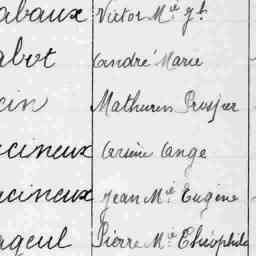 abaux Victor Mie
abot André Marie
cin Mathurin Prosper
cineux Arsène Ange
cineux Jean Mie Eugène
ageul Pierre Mie Théophile